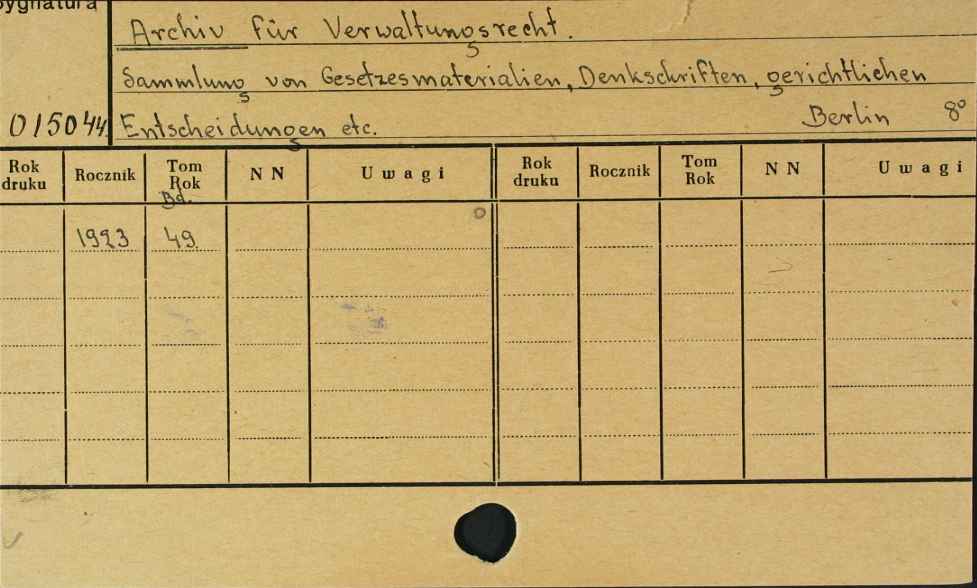 Sygnatura
Archiv für Verwaltungsrecht.
Sammlung von Gesetzesmaterialien, Denkschriften, gerichtlichen
015044 Entscheidungen etc. Berlin 8°
Rok druku Rocznik Tom Rok NN Uwagi Rok druku Rocznik Tom Rok NN Uwagi
Bd.
1923 49.